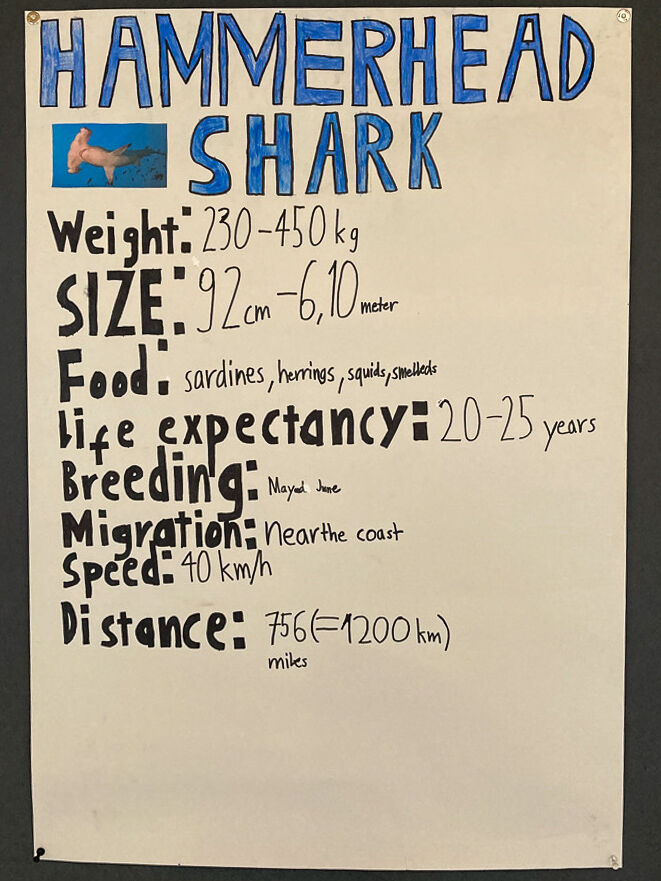 HAMMERHEAD
SHARK
Weight: 230-450 kg
SIZE: 92cm-6,10 meter
Food: sardines, herrings, squids, smelleds
life expectancy: 20-25 years
Breeding: May and June
Migration: Near the coast
Speed: 40 km/h
Distance: 756 (=1200 km)
miles